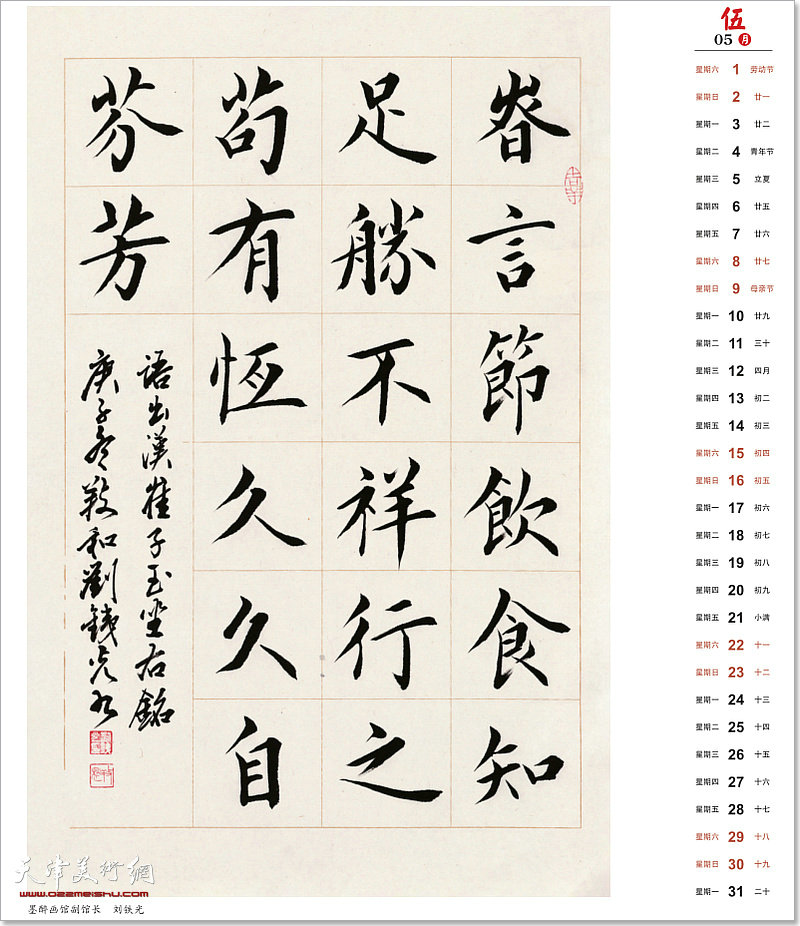 昚言節飲食知
足勝不祥行之
苟有恆久久自
芬芳
语出漢崔子玉坐右銘
庚子冬敬和劉鐵光书
伍
05 月
星期六 1 劳动节
星期日 2 廿一
星期一 3 廿二
星期二 4 青年节
星期三 5 立夏
星期四 6 廿五
星期五 7 廿六
星期六 8 廿七
星期日 9 母亲节
星期一 10 廿九
星期二 11 三十
星期三 12 四月
星期四 13 初二
星期五 14 初三
星期六 15 初四
星期日 16 初五
星期一 17 初六
星期二 18 初七
星期三 19 初八
星期四 20 初九
星期五 21 小满
星期六 22 十一
星期日 23 十二
星期一 24 十三
星期二 25 十四
星期三 26 十五
星期四 27 十六
星期五 28 十七
星期六 29 十八
星期日 30 十九
星期一 31 二十
天津美術網
www.022meishu.com
墨醉画馆副馆长 刘铁光